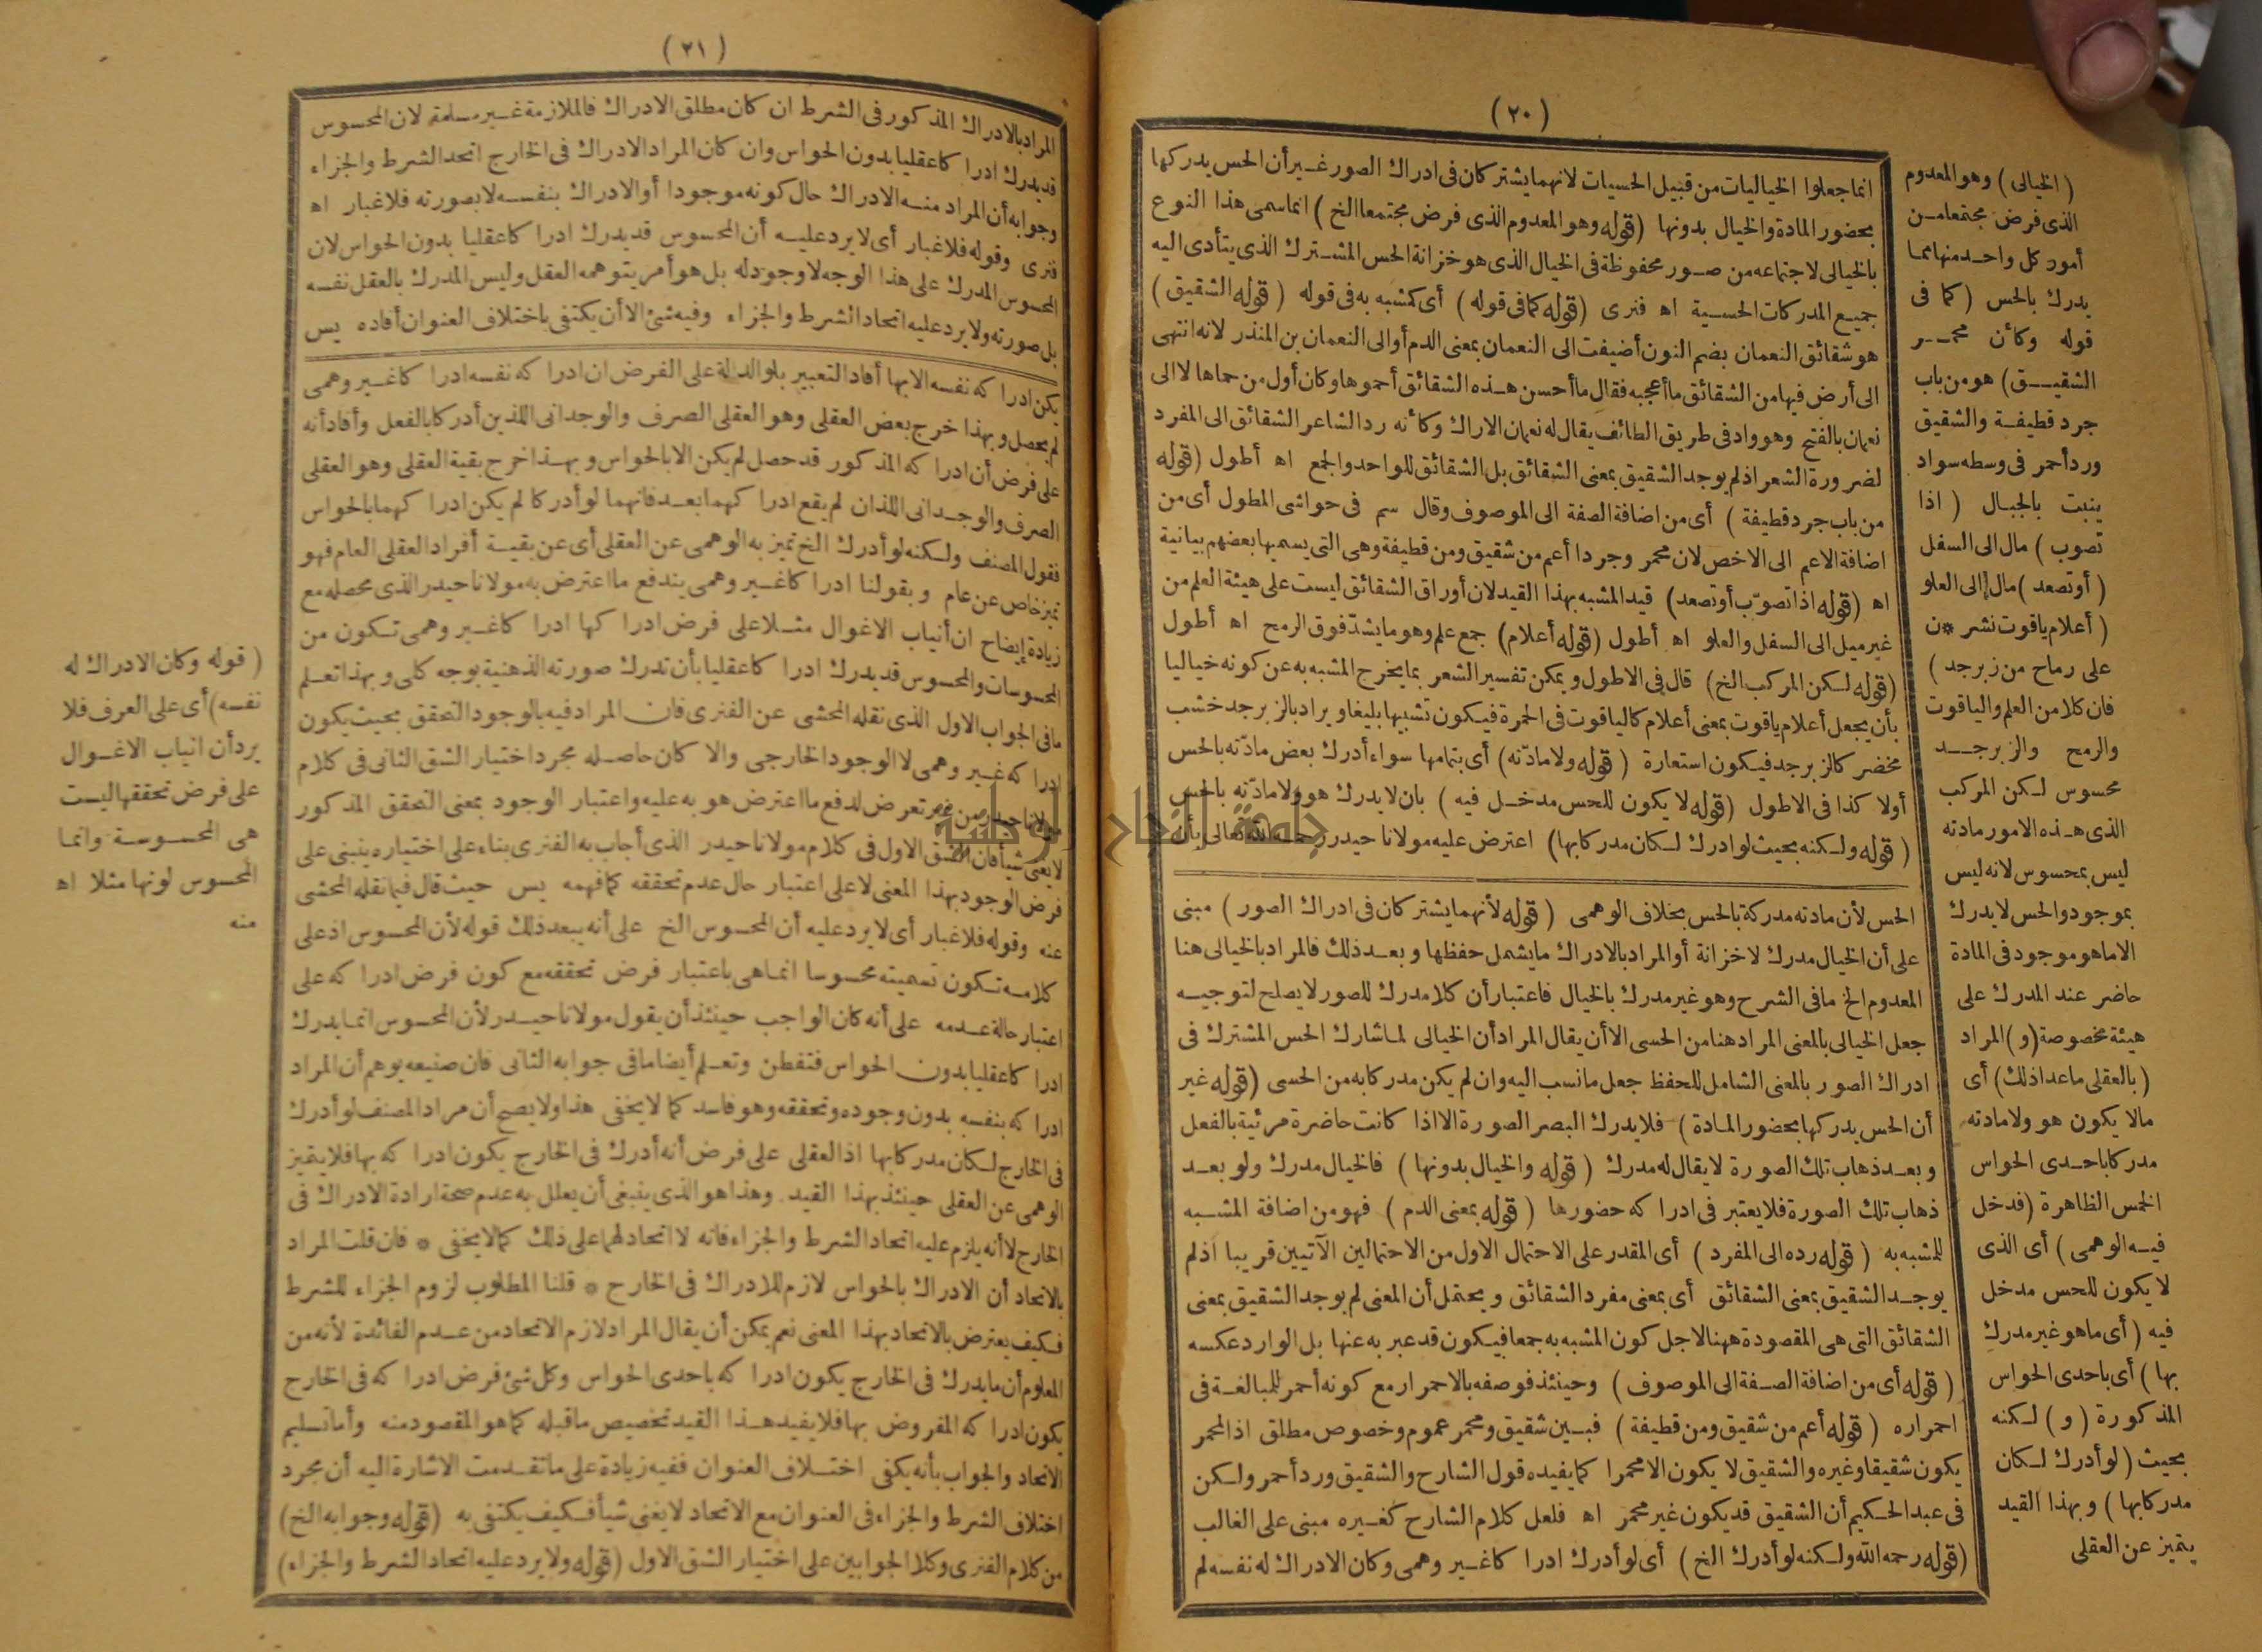 (٢٠)
انما جعلوا الخياليات من قبيل الحسيات لانهما يشتركان فى ادراك الصور غير أن الحس يدركها
بحضور المادة والخيال بدونها (قوله وهو المعدوم الذى فرض مجتمعا الخ) انما سمى هذا النوع
بالخيالى لاجتماعه من صور محفوظة فى الخيال الذى هو خزانة الحس المشترك الذى يتأدى اليه
جميع المدركات الحسية اه فنرى (قوله كما فى قوله) أى كمشبه به فى قوله (قوله الشقيق)
هو شقائق النعمان بضم النون أضيفت الى النعمان بمعنى الدم أو الى النعمان بن المنذر لانه انتهى
الى أرض فيها من الشقائق ما أعجبه فقال ما أحسن هذه الشقائق أحموها وكان أول من حماها لا الى
نعمان بالفتح وهو واد فى طريق الطائف يقال له نعمان الاراك وكأنه رد الشاعر الشقائق الى المفرد
لضرورة الشعر اذ لم يوجد الشقيق بمعنى الشقائق بل الشقائق للواحد والجمع اه أطول (قوله
من باب جرد قطيفة) أى من اضافة الصفة الى الموصوف وقال سم فى حواشى المطول أى من
اضافة الاعم الى الاخص لان محمر وجردا أعم من شقيق ومن قطيفة وهى التى يسميها بعضهم بيانية
اه (قوله اذا تصوّب أو تصعد) قيد المشبه بهذا القيد لان أوراق الشقائق ليست على هيئة العلم من
غير ميل الى السفل والعلو اه أطول (قوله أعلام) جمع علم وهو ما يشدّ فوق الرمح اه أطول
(قوله لكن المركب الخ) قال فى الاطول ويمكن تفسير الشعر بما يخرج المشبه به عن كونه خياليا
بأن يجعل أعلام ياقوت بمعنى أعلام كالياقوت فى الحمرة فيكون تشبيها بليغا ويراد بالزبرجد خشب
مخضر كالزبرجد فيكون استعارة (قوله ولا مادّته) أى بتمامها سواء أدرك بعض مادّته بالحس
أولا كذا فى الاطول (قوله لا يكون للحس مدخل فيه) بان لا يدرك هو ولا مادّته بالحس
(قوله ولكنه بحيث لو ادرك لكان مدركا بها) اعترض عليه مولانا حيدر رحمه الله تعالى بأن
الحس لأن مادته مدركة بالحس بخلاف الوهمى (قوله لأنهما يشتركان فى ادراك الصور) مبنى
على أن الخيال مدرك لا خزانة أو المراد بالادراك ما يشمل حفظها وبعد ذلك فالمراد بالخيالى هنا
المعدوم الخ ما فى الشرح وهو غير مدرك بالخيال فاعتبار أن كلا مدرك للصور لا يصلح لتوجيه
جعل الخيالى بالمعنى المراد هنا من الحسى الا أن يقال المراد أن الخيالى لما شارك الحس المشترك فى
ادراك الصور بالمعنى الشامل للحفظ جعل ما نسب اليه وان لم يكن مدركا به من الحسى (قوله غير
أن الحس يدركها بحضور المادة) فلا يدرك البصر الصورة الا اذا كانت حاضرة مرئية بالفعل
وبعد ذهاب تلك الصورة لا يقال له مدرك (قوله والخيال بدونها) فالخيال مدرك ولو بعد
ذهاب تلك الصورة فلا يعتبر فى ادراكه حضورها (قوله بمعنى الدم) فهو من اضافة المشبه
للمشبه به (قوله رده الى المفرد) أى المقدر على الاحتمال الاول من الاحتمالين الآتيين قريبا اذ لم
يوجد الشقيق بمعنى الشقائق أى بمعنى مفرد الشقائق ويحتمل أن المعنى لم يوجد الشقيق بمعنى
الشقائق التى هى المقصودة ههنا لاجل كون المشبه به جمعا فيكون قد عبر به عنها بل الوارد عكسه
(قوله أى من اضافة الصفة الى الموصوف) وحينئذ فوصفه بالاحمرار مع كونه أحمر للمبالغة فى
احمراره (قوله أعم من شقيق ومن قطيفة) فبين شقيق ومحمر عموم وخصوص مطلق اذ المحمر
يكون شقيقا وغيره والشقيق لا يكون الا محمرا كما يفيده قول الشارح والشقيق ورد أحمر ولكن
فى عبد الحكيم أن الشقيق قد يكون غير محمر اه فلعل كلام الشارح كغيره مبنى على الغالب
(قوله رحمه الله ولكنه لو أدرك الخ) أى لو أدرك ادراكا غير وهمى وكان الادراك له نفسه لم
(الخيالى) وهو المعدوم
الذى فرض مجتمعا من
أمور كل واحد منها مما
يدرك بالحس (كما فى
قوله وكأن محمر
الشقيق) هو من باب
جرد قطيفة والشقيق
ورد أحمر فى وسطه سواد
ينبت بالجبال (اذا
تصوب) مال الى السفل
(أو تصعد) مال إلى العلو
(أعلام ياقوت نشر*ن
على رماح من زبرجد)
فان كلا من العلم والياقوت
والرمح والزبرجد
محسوس لكن المركب
الذى هذه الامور مادته
ليس بمحسوس لانه ليس
بموجود والحس لا يدرك
الا ما هو موجود فى المادة
حاضر عند المدرك على
هيئة مخصوصة (و) المراد
(بالعقلى ما عدا ذلك) أى
ما لا يكون هو ولا مادته
مدركا باحدى الحواس
الخمس الظاهرة (فدخل
فيه الوهمى) أى الذى
لا يكون للحس مدخل
فيه (أى ما هو غير مدرك
بها) أى باحدى الحواس
المذكورة (و) لكنه
بحيث (لو أدرك لكان
مدركا بها) وبهذا القيد
يتميز عن العقلى
(٢١)
المراد بالادراك المذكور فى الشرط ان كان مطلق الادراك فالملازمة غير مسلمة لان المحسوس
قد يدرك ادراكا عقليا بدون الحواس وان كان المراد الادراك فى الخارج اتحد الشرط والجزاء
وجوابه أن المراد منه الادراك حال كونه موجودا أو الادراك بنفسه لا بصورته فلا غبار اه
فنرى وقوله فلا غبار أى لا يرد عليه أن المحسوس قد يدرك ادراكا عقليا بدون الحواس لان
المحسوس المدرك على هذا الوجه لا وجود له بل هو أمر يتوهمه العقل وليس المدرك بالعقل نفسه
بل صورته ولا يرد عليه اتحاد الشرط والجزاء وفيه شئ الا أن يكتفى باختلاف العنوان أفاده يس
يكن ادراكه نفسه الا بها أفاد التعبير بلو الدالة على الفرض ان ادراكه نفسه ادراكا غير وهمى
لم يحصل وبهذا خرج بعض العقلى وهو العقلى الصرف والوجدانى اللذين أدركا بالفعل وأفاد أنه
على فرض أن ادراكه المذكور قد حصل لم يكن الا بالحواس وبهذا خرج بقية العقلى وهو العقلى
الصرف والوجدانى اللذان لم يقع ادراكهما بعد فانهما لو أدركا لم يكن ادراكهما بالحواس
فقول المصنف ولكنه لو أدرك الخ تميز به الوهمى عن العقلى أى عن بقية أفراد العقلى العام فهو
تميز خاص عن عام وبقولنا ادراكا غير وهمى يندفع ما اعترض به مولانا حيدر الذى محصله مع
زيادة إيضاح ان أنياب الاغوال مثلا على فرض ادراكها ادراكا غير وهمى تكون من
المحسوسات والمحسوس قد يدرك ادراكا عقليا بأن تدرك صورته الذهنية بوجه كلى وبهذا تعلم
ما فى الجواب الاول الذى نقله المحشى عن الفنرى فان المراد فيه بالوجود التحقق بحيث يكون
ادراكه غير وهمى لا الوجود الخارجى والا كان حاصله مجرد اختيار الشق الثانى فى كلام
مولانا حيدر من غير تعرض لدفع ما اعترض هو به عليه واعتبار الوجود بمعنى التحقق المذكور
لا يغنى شيأ فان الشق الاول فى كلام مولانا حيدر الذى أجاب به الفنرى بناء على اختياره ينبنى على
فرض الوجود بهذا المعنى لا على اعتبار حال عدم تحققه كما فهمه يس حيث قال فيما نقله المحشى
عنه وقوله فلا غبار أى لا يرد عليه أن المحسوس الخ على أنه يبعد ذلك قوله لأن المحسوس اذ على
كلامه تكون تسميته محسوسا انما هى باعتبار فرض تحققه مع كون فرض ادراكه على
اعتبار حالة عدمه على أنه كان الواجب حينئذ أن يقول مولانا حيدر لأن المحسوس انما يدرك
ادراكا عقليا بدون الحواس فتفطن وتعلم أيضا ما فى جوابه الثانى فان صنيعه يوهم أن المراد
ادراكه بنفسه بدون وجوده وتحققه وهو فاسد كما لا يخفى هذا ولا يصح أن مراد المصنف لو أدرك
فى الخارج لكان مدركا بها اذ العقلى على فرض أنه أدرك فى الخارج يكون ادراكه بها فلا يتميز
الوهمى عن العقلى حينئذ بهذا القيد وهذا هو الذى ينبغى أن يعلل به عدم صحة ارادة الادراك فى
الخارج لا أنه يلزم عليه اتحاد الشرط والجزاء فانه لا اتحاد لهما على ذلك كما لا يخفى * فان قلت المراد
بالاتحاد أن الادراك بالحواس لازم للادراك فى الخارج * قلنا المطلوب لزوم الجزاء للشرط
فكيف يعترض بالاتحاد بهذا المعنى نعم يمكن أن يقال المراد لازم الاتحاد من عدم الفائدة لأنه من
المعلوم أن ما يدرك فى الخارج يكون ادراكه باحدى الحواس وكل شئ فرض ادراكه فى الخارج
يكون ادراكه المفروض بها فلا يفيد هذا القيد تخصيص ما قبله كما هو المقصود منه وأما تسليم
الاتحاد والجواب بأنه يكفى اختلاف العنوان ففيه زيادة على ما تقدمت الاشارة اليه أن مجرد
اختلاف الشرط والجزاء فى العنوان مع الاتحاد لا يغنى شيأ فكيف يكتفى به (قوله وجوابه الخ)
من كلام الفنرى وكلا الجوابين على اختيار الشق الاول (قوله ولا يرد عليه اتحاد الشرط والجزاء)
(قوله وكان الادراك له
نفسه) أى على العرف فلا
يرد أن انياب الاغوال
على فرض تحققها ليست
هى المحسوسة وانما
المحسوس لونها مثلا اه
منه
جامعة النجاح الوطنية